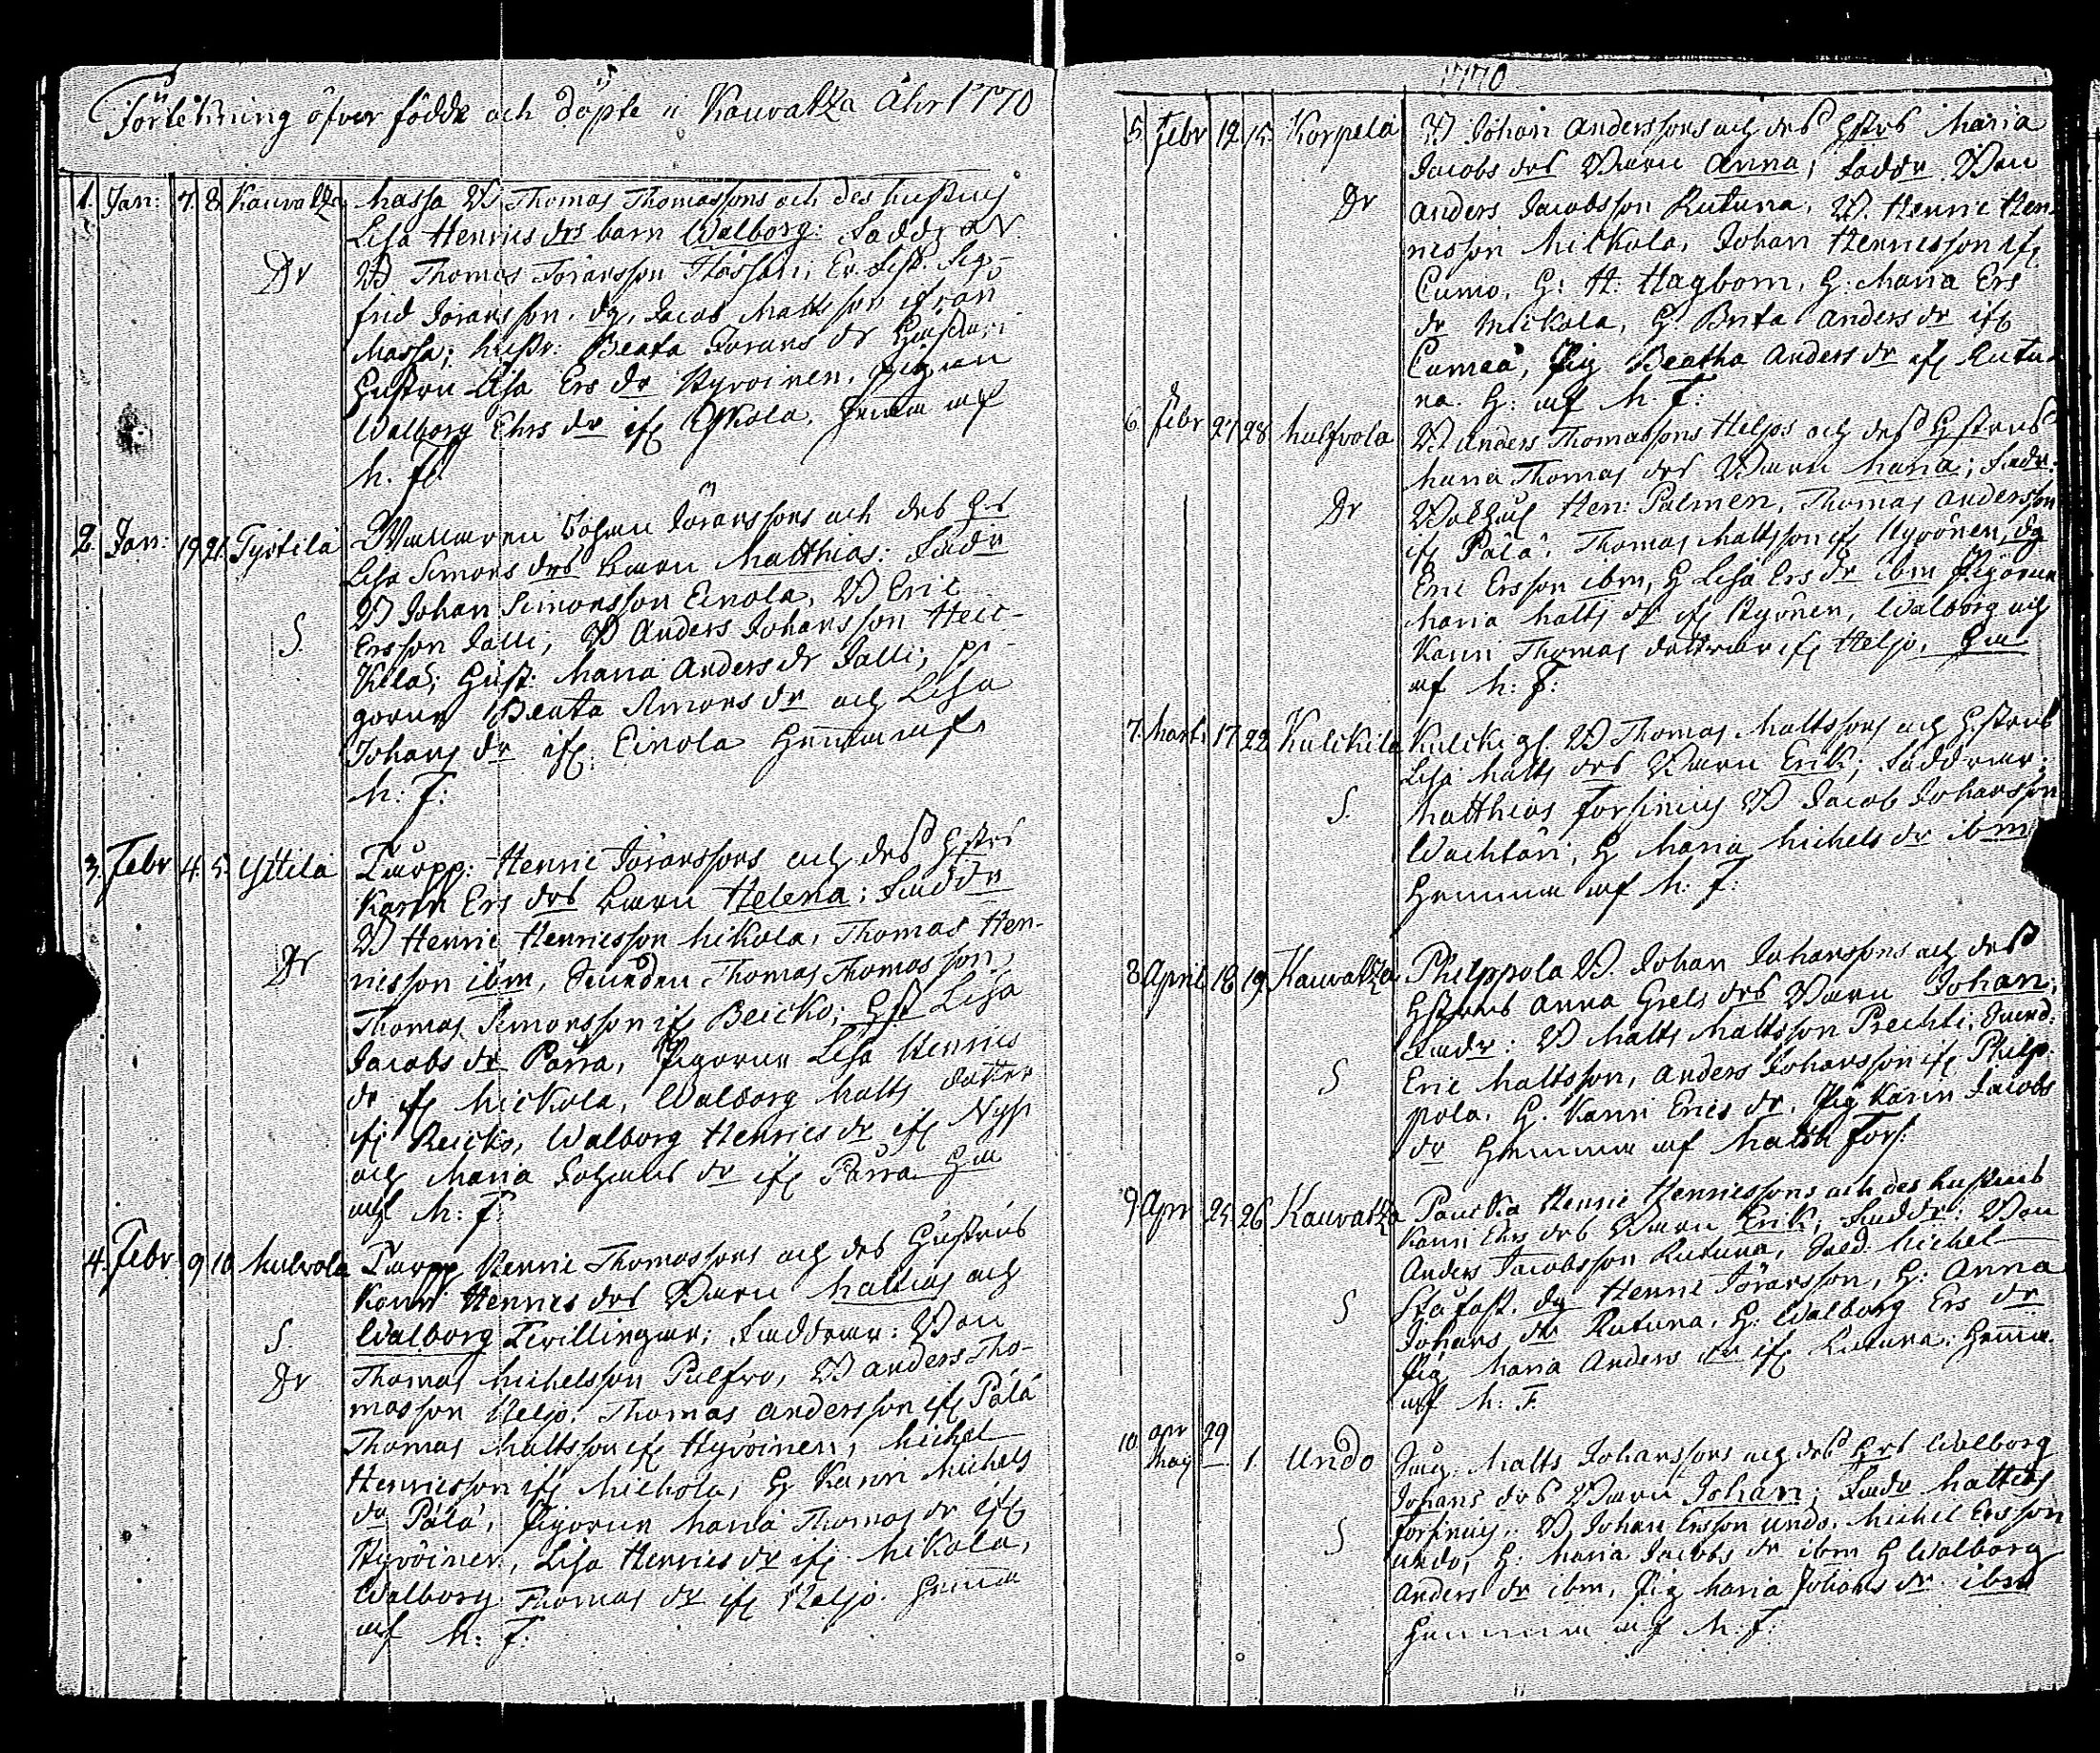 Förtekning öfver födde och döpte i Kauvatza Åhr 1770
1. Jan: 7. 8. Kauvatza Massa W Thomas Thomassons och des hustrus
Lisa Henrics drs barn Walborg: Fadd:
Dr W Thomas Jöransson
frid Jöransson, dg, Jacob Mattsson ifrån
Massa; hustr: Beata Jörans dr
Hustru Lisa Ers dr Hyvoinen, pigan
Walborg Ehrs dr ifr
M. F.
2. Jan: 19 21. Tyrtilä Johan Jöranssons och des
Lisa Simons drs barn Matthias: Fadr
W Johan Simonsson Einola, W Eric
S. Ersson Jalli, W Anders Johansson Heic-
kilä; Hust: Maria Anders dr Jalli; pi-
gorna Beata Simons dr och Lisa
Johans dr ifr: Einola Hemma af
M: F:
3. Febr 4. 5. Yttilä Torpp: Henric Jöranssons och des Hstrs
Karin Ers drs barn Helena; Faddr
W Henric Henricsson Mikola, Thomas Hen-
Dr ricsson ibm, Thomas Thomasson,
Thomas Simonsson ifr Reicko; Hst Lisa
Jacobs dr Pärra, Pigorna Lisa Henrics
dr ifr Mickola, Walborg Matts dotter
ifr Reicko, Walborg Henrics dr ifr
och Maria Johans dr ifr Pärra Hm
af M: F:
4. Febr 9 10 Mulvola Torpp Henric Thomassons och des Hustrus
Karin Henrics drs Barn Mattias och
S. Walborg Tvillingar; Faddrar: Bon
Dr Thomas Michelsson W Anders Tho-
masson Heljo. Thomas Andersson ifr Pälä
Thomas Mattsson ifr Hyvöinen, Michel
Henricsson ifr Mickola, H Karin Michels
dr Pälä, Pigorna Maria Thomas dr ifr
Hyvöinen, Lisa Henrics dr ifr Mikola,
Walborg Thomas dr ifr Heljo. Hemma
af M: F:
1770
5. Febr 12. 15. Korpela W Johan Anderssons och des Hstrs Maria
Jacobs drs Barn Anna; Faddr Bon
Dr Anders Jacobsson Rutuna, W. Henric Hen-
ricsson Mickola, Johan Henricsson ifr
Cumo, H: H: Hagbom, H: Maria Ers
dr Mickola, H: Brita Anders dr ifr
Cumeå, Pig Beatha Anders dr ifr Rutu-
na. H: af M. F:
6. Febr 27 28 Mulfvola W Anders Thomassons Heljos och des Hstrus
Maria Thomas drs Barn Maria; Fadr:
Dr Hen: Palmen, Thomas Andersson
ifr Pälä. Thomas Mattsson ifr Hyvönen, dg
Eric Ersson ibm, H Lisa Ers dr ibm Pigorna
Maria Matts dr ifr Hyvönen, Walborg och
Karin Thomas döttrar ifr Heljo, Hm
af M: F:
7. Marti 17 22 Kulckila W Thomas Mattssons och Hstrus
Lisa Matts drs Barn Erik; Faddrar:
S. Matthias Forsinius W Jacob Johansson
H Maria Michels dr ibm
Hemma af M: F:
8. April 18 19. Kauvatza Philppola W. Johan Johanssons och des
Hstrus Anna Grels drs Barn Johan;
Fadr: W Matts Mattsson Prechti,
S Eric Mattsson, Anders Johansson ifr Philp-
pola. H. Karin Erics dr. Pig Karin Jacobs
dr Hemma af Matth Fors:
9. Apr 25 26 Kauvatza Paucka Henric Henricssons och des hustrus
Karin Ehrs drs Barn Erik, Faddr: Bon
Anders Jacobsson Rutuna, Michel
S dg Henric Jöransson, H: Anna
Johans dr Rutuna, H: Walborg Ers dr
Pig Maria Anders dr ifr Rutuna: Hemma
af M: F.
10. Apr 29
May 1. Undo Matts Johanssons och des Hrs Walborg
Johans drs Barn Johan; Fadr Mattias
S Forsinius. W Johan Ersson Undo, Michel Ersson
Undo, H: Maria Jacobs dr ibm H Walborg
Anders dr ibm, Pig Maria Johans dr ibm
Hemma af M: F: